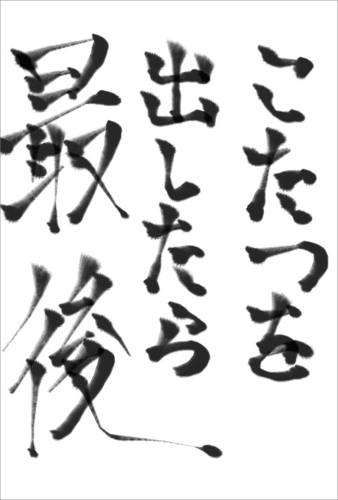 こたつを
出したら
最後